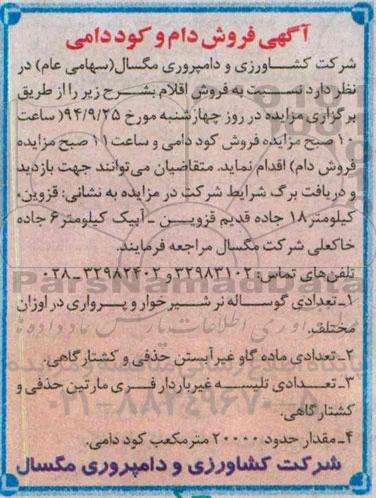 آگهی فروش دام و کود دامی
شرکت کشاورزی و دامپروری مگسال(سهامی عام) در
نظر دارد نسبت به فروش اقلام بشرح زیر را از طریق
برگزاری مزایده در روز چهارشنبه مورخ ۹۴/۹/۲۵( ساعت
۱۰ صبح مزایده فروش کود دامی و ساعت۱۱ صبح مزایده
فروش دام) اقدام نماید. متقاضیان می‌توانند جهت بازدید
و دریافت برگ شرایط شرکت در مزایده به نشانی: قزوین،
کیلومتر۱۸ جاده قدیم قزوین - آبیک کیلومتر۶ جاده
خاکعلی شرکت مگسال مراجعه فرمایند.
تلفن‌های تماس: ۳۲۹۸۳۱۰۲ و ۳۲۹۸۲۴۰۲ -۰۲۸
۱ـ تعدادی گوساله نر شیرخوار و پرواری در اوزان
مختلف.
۲ـ تعدادی ماده گاو غیرآبستن حذفی و کشتارگاهی.
۳ـ تعدادی تلیسه غیرباردار فری مارتین حذفی و
کشتارگاهی.
۴ـ مقدار حدود ۲۰۰۰۰ مترمکعب کود دامی.
شرکت کشاورزی و دامپروری مگسال
ParsNamadData
۰۲۱-۸۸۳۴۹۶۷۰